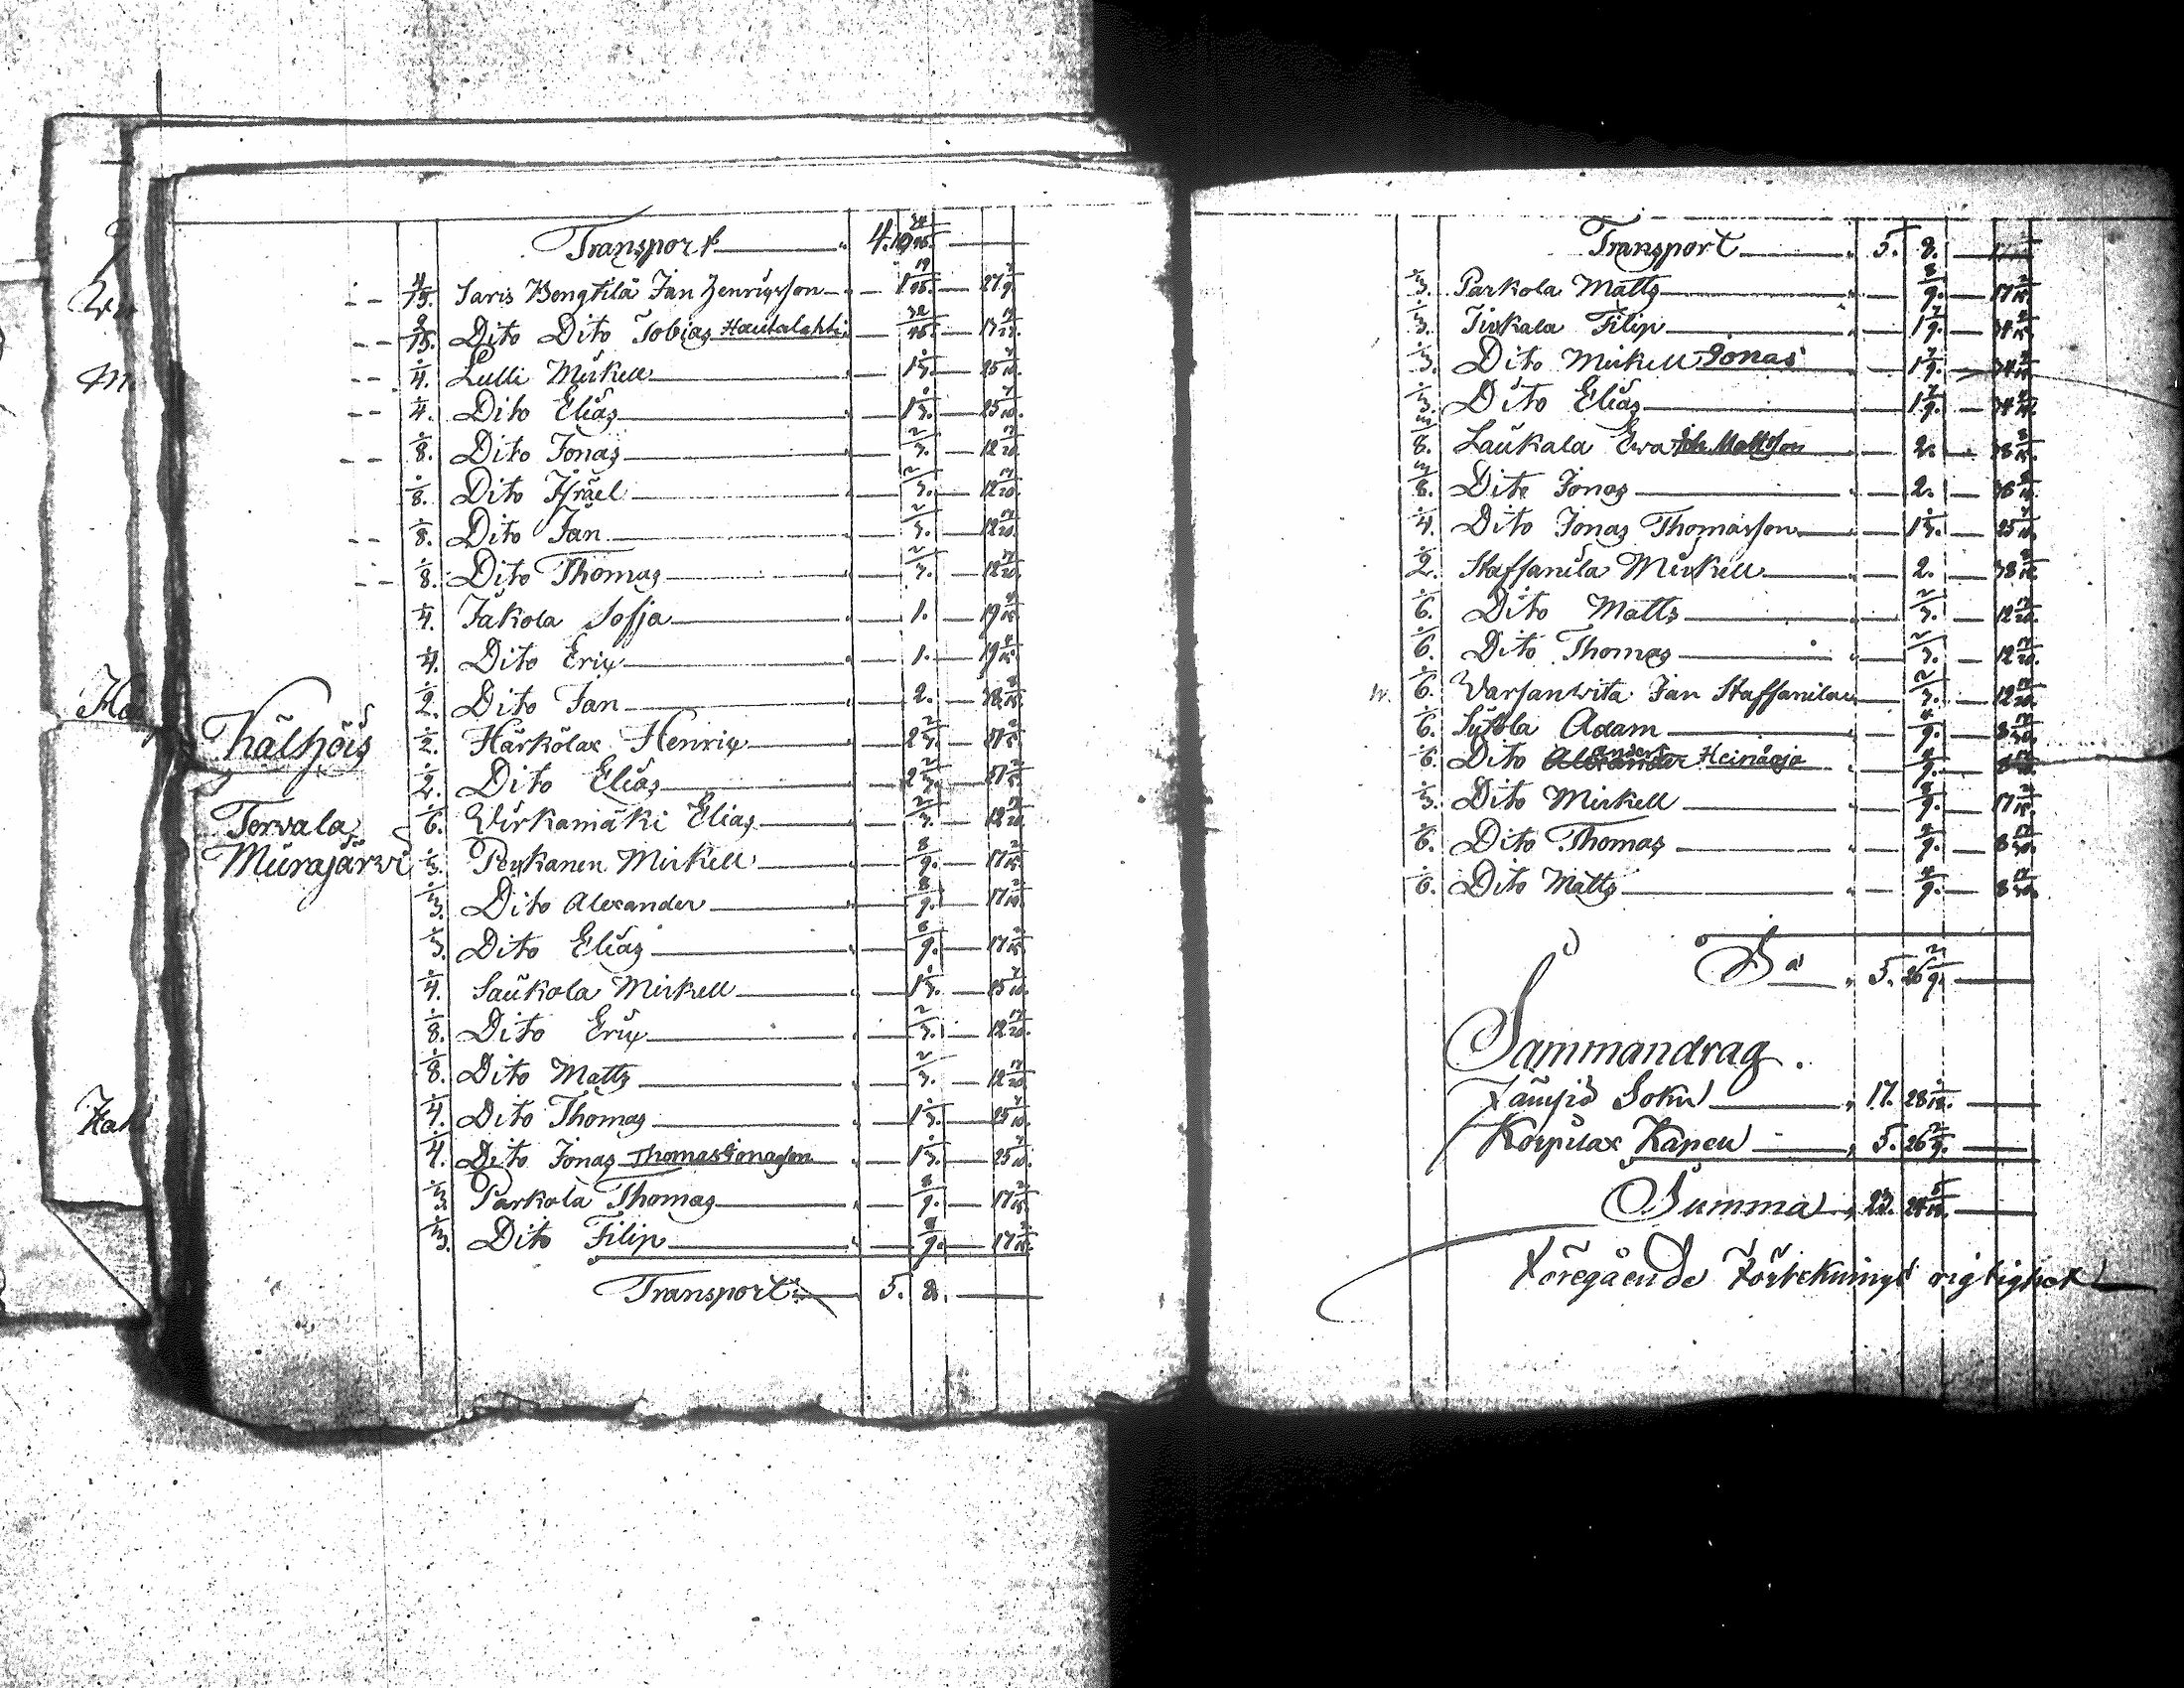 Transport 4. 19 24/45
4/15. Saris Bengtilä Jan Henrigsson 1 19/45. 27 7/9
2/15. Dito Dito Tobias Hautalahti 32/45. 13
1/4. Lulli Mickell 1 1/3. 25 7/10
1/4. Dito Elias 1 1/3. 25 7/10
1/8. Dito Jonas 2/3. 12 17/20.
1/8. Dito Israel 2/3. 12 17/20.
1/8. Dito Jan 2/3. 12 17/20.
1/8. Dito Thomas 2/3. 12 17/20.
1/4. Jakola Sofja 1. 19 4/15
1/4. Dito Erix 1. 19 4/15
1/2. Dito Jan 2. 38 8/15
Thälhjöis
1/2. Härkölax Henrix 2 2/3.
1/2. Dito Elias 2 2/3.
Torvala
1/6. Wirkamäki Elias 2/3. 12 17/20
Murajärvi
1/3. Peykanen Mickell 8/9. 17 2/15
1/3. Dito Alexander 8/9. 17 2/15
1/3. Dito Elias 8/9. 17 2/15
1/4. Saukola Mickell 1 1/3. 25 7/10
1/8. Dito Erix 2/3. 12 17/20.
1/8. Dito Matts 2/3. 12 17/20
1/4. Dito Thomas 1 1/3. 25 7/10
1/4. Dito Jonas Thomas Jonasson 1 1/3. 25 7/10
1/3. Parkola Thomas 8/9. 17 2/15
1/3. Dito Filip 8/9. 17 2/15
Transport 5. 8.
Transport 5. 8.
1/3. Parkola Matts 8/9. 17 2/15
1/3. Jickala Filip 1 7/9. 34 4/15
1/3. Dito Mickell Jonas 1 7/9. 34 4/15
1/3. Dito Elias 1 7/9. 34 4/15
3/8. Laukala Ewa Joh. Mattsson 2. 38 8/15
3/8. Dito Jonas 2. 38 8/15
1/4. Dito Jonas Thomasson 1 1/3. 25 7/10
1/2. Staffanila Mickell 2. 38 8/15
1/6. Dito Matts 2/3. 12 17/20.
1/6. Dito Thomas 2/3. 12 17/20.
1/6. Warsanwita Jan Staffanilax 2/3. 12 17/20.
1/6. Adam 4/9. 8 17/30.
1/6. Dito Alexander Anders Heinäoja 4/9. 8 17/30.
1/3. Dito Mickell 8/9. 17 2/15
1/6. Dito Thomas 4/9. 8 17/30.
1/6. Dito Matts 4/9. 8 17/30.
Sa 5. 26 2/9.
Sammandrag.
Jämsiö Sokn 17. 28 1/18.
Korpilax Kapell 5. 26 2/9.
Summa 23. 24 5/18.
Föregående Förtekningś rigtighet